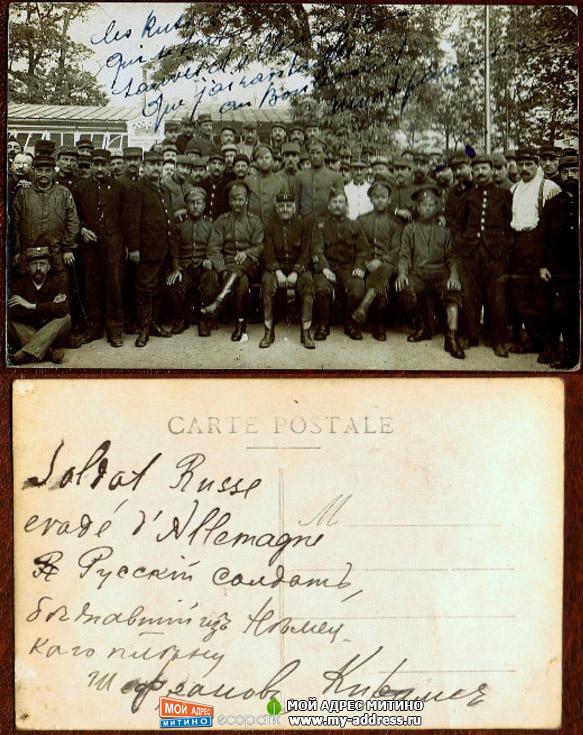 les Russes
qui se sont
sauvés d'Allemagne
que j'ai
au
CARTE POSTALE
Soldat Russe
evadé d'Allemagne
M
Я Русскій солдатъ,
бѣжавшій изъ Нѣмец-
каго плѣну
МОЙ АДРЕС
МИТИНО
ecopark
МОЙ АДРЕС МИТИНО
www.my-address.ru